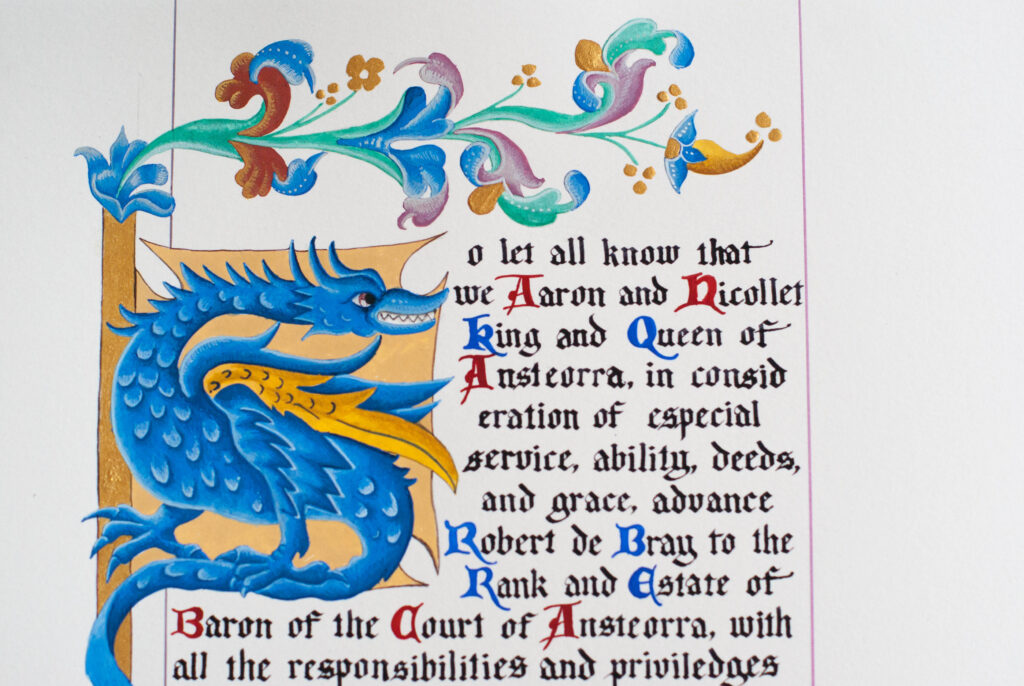 o let all know that
we Aaron and Nicollet
King and Queen of
Ansteorra, in consid
eration of especial
service, ability, deeds,
and grace, advance
Robert de Bray to the
Rank and Estate of
Baron of the Court of Ansteorra, with
all the responsibilities and priviledges